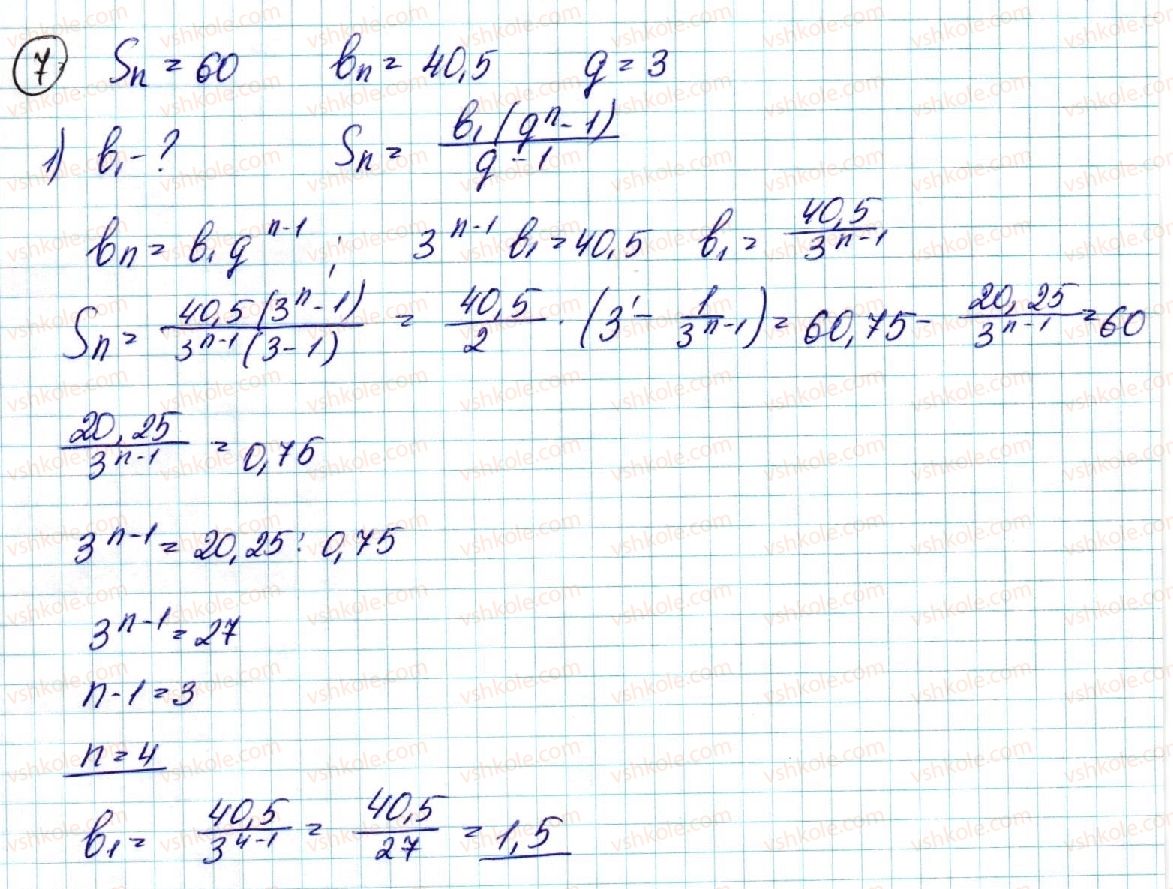 7 Sn = 60 bn = 40,5 q = 3
1) b₁ - ? Sn = b₁(qⁿ - 1) / (q - 1)
bn = b₁qⁿ⁻¹ ; 3ⁿ⁻¹ b₁ = 40,5 b₁ = 40,5 / 3ⁿ⁻¹
Sn = 40,5(3ⁿ - 1) / 3ⁿ⁻¹(3 - 1) = 40,5 / 2 · (3¹ - 1 / 3ⁿ⁻¹) = 60,75 - 20,25 / 3ⁿ⁻¹ = 60
20,25 / 3ⁿ⁻¹ = 0,75
3ⁿ⁻¹ = 20,25 : 0,75
3ⁿ⁻¹ = 27
n - 1 = 3
n = 4
b₁ = 40,5 / 3⁴⁻¹ = 40,5 / 27 = 1,5